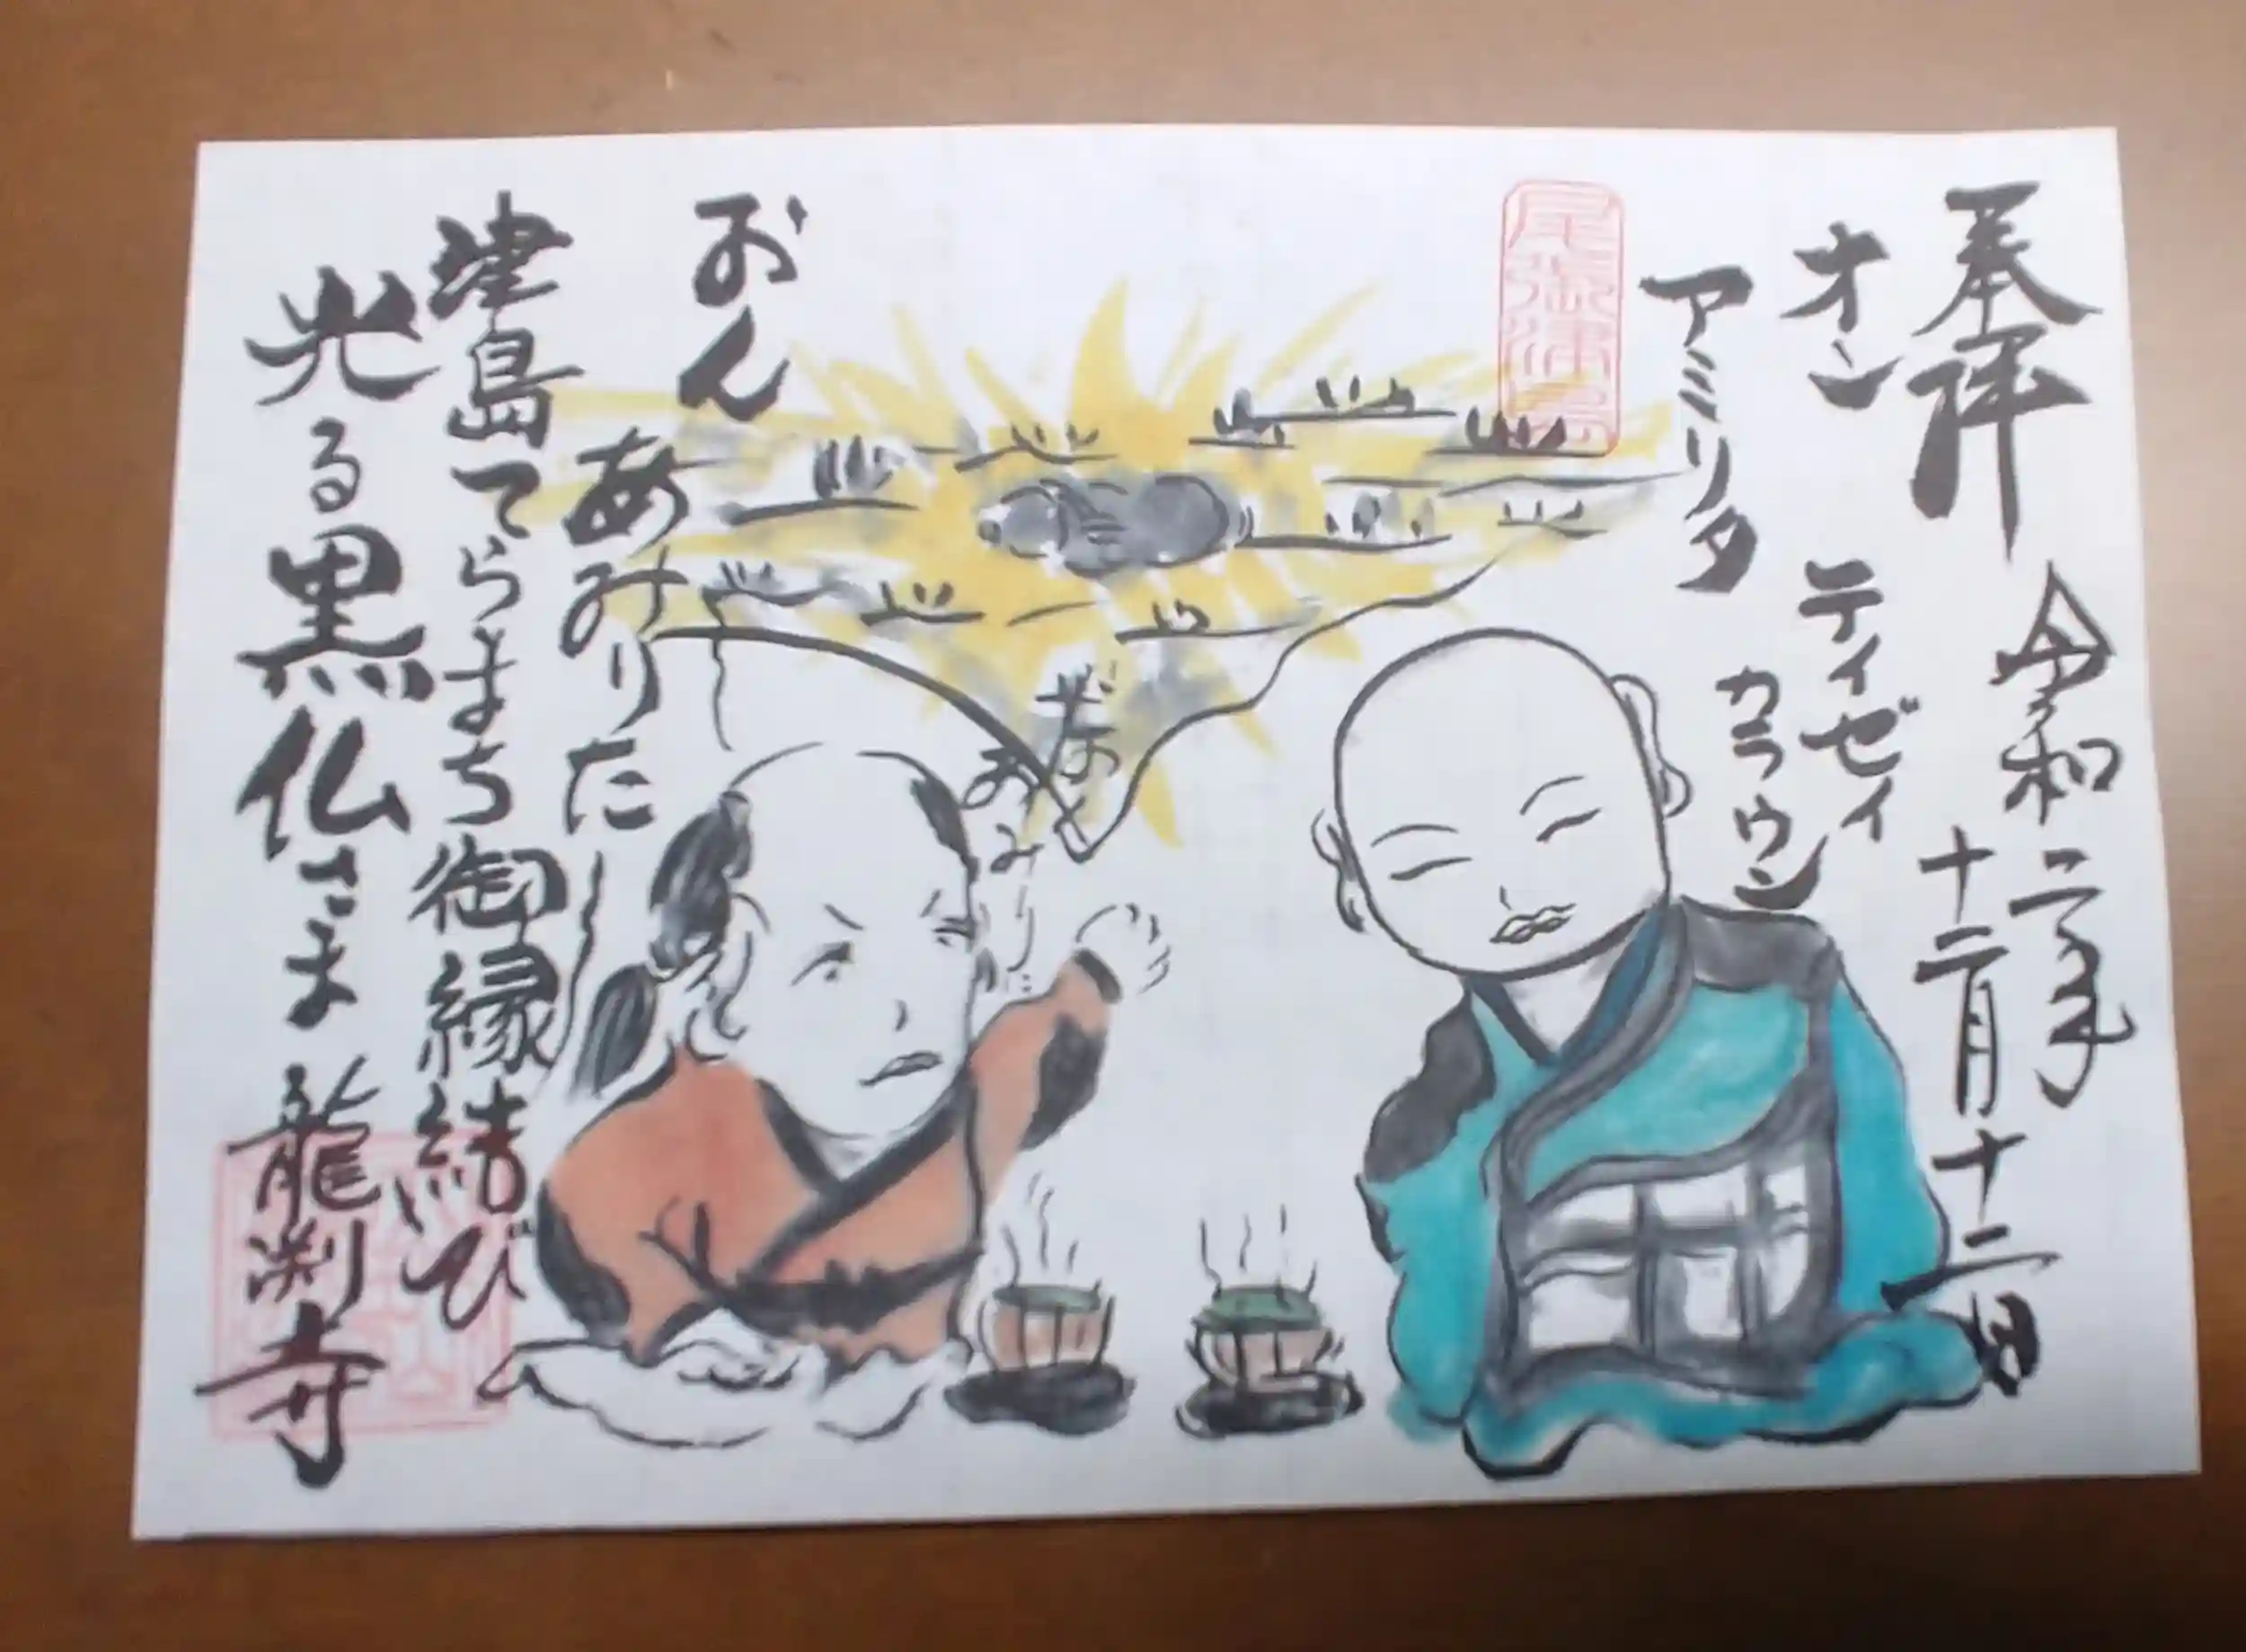 奉拝
令和二年
十二月十二日
オン
アミリタ
テイゼイ
カラウン
尾張津島
おん
あみりた
津島てらまち御縁結び
光る黒仏さま
龍渕寺